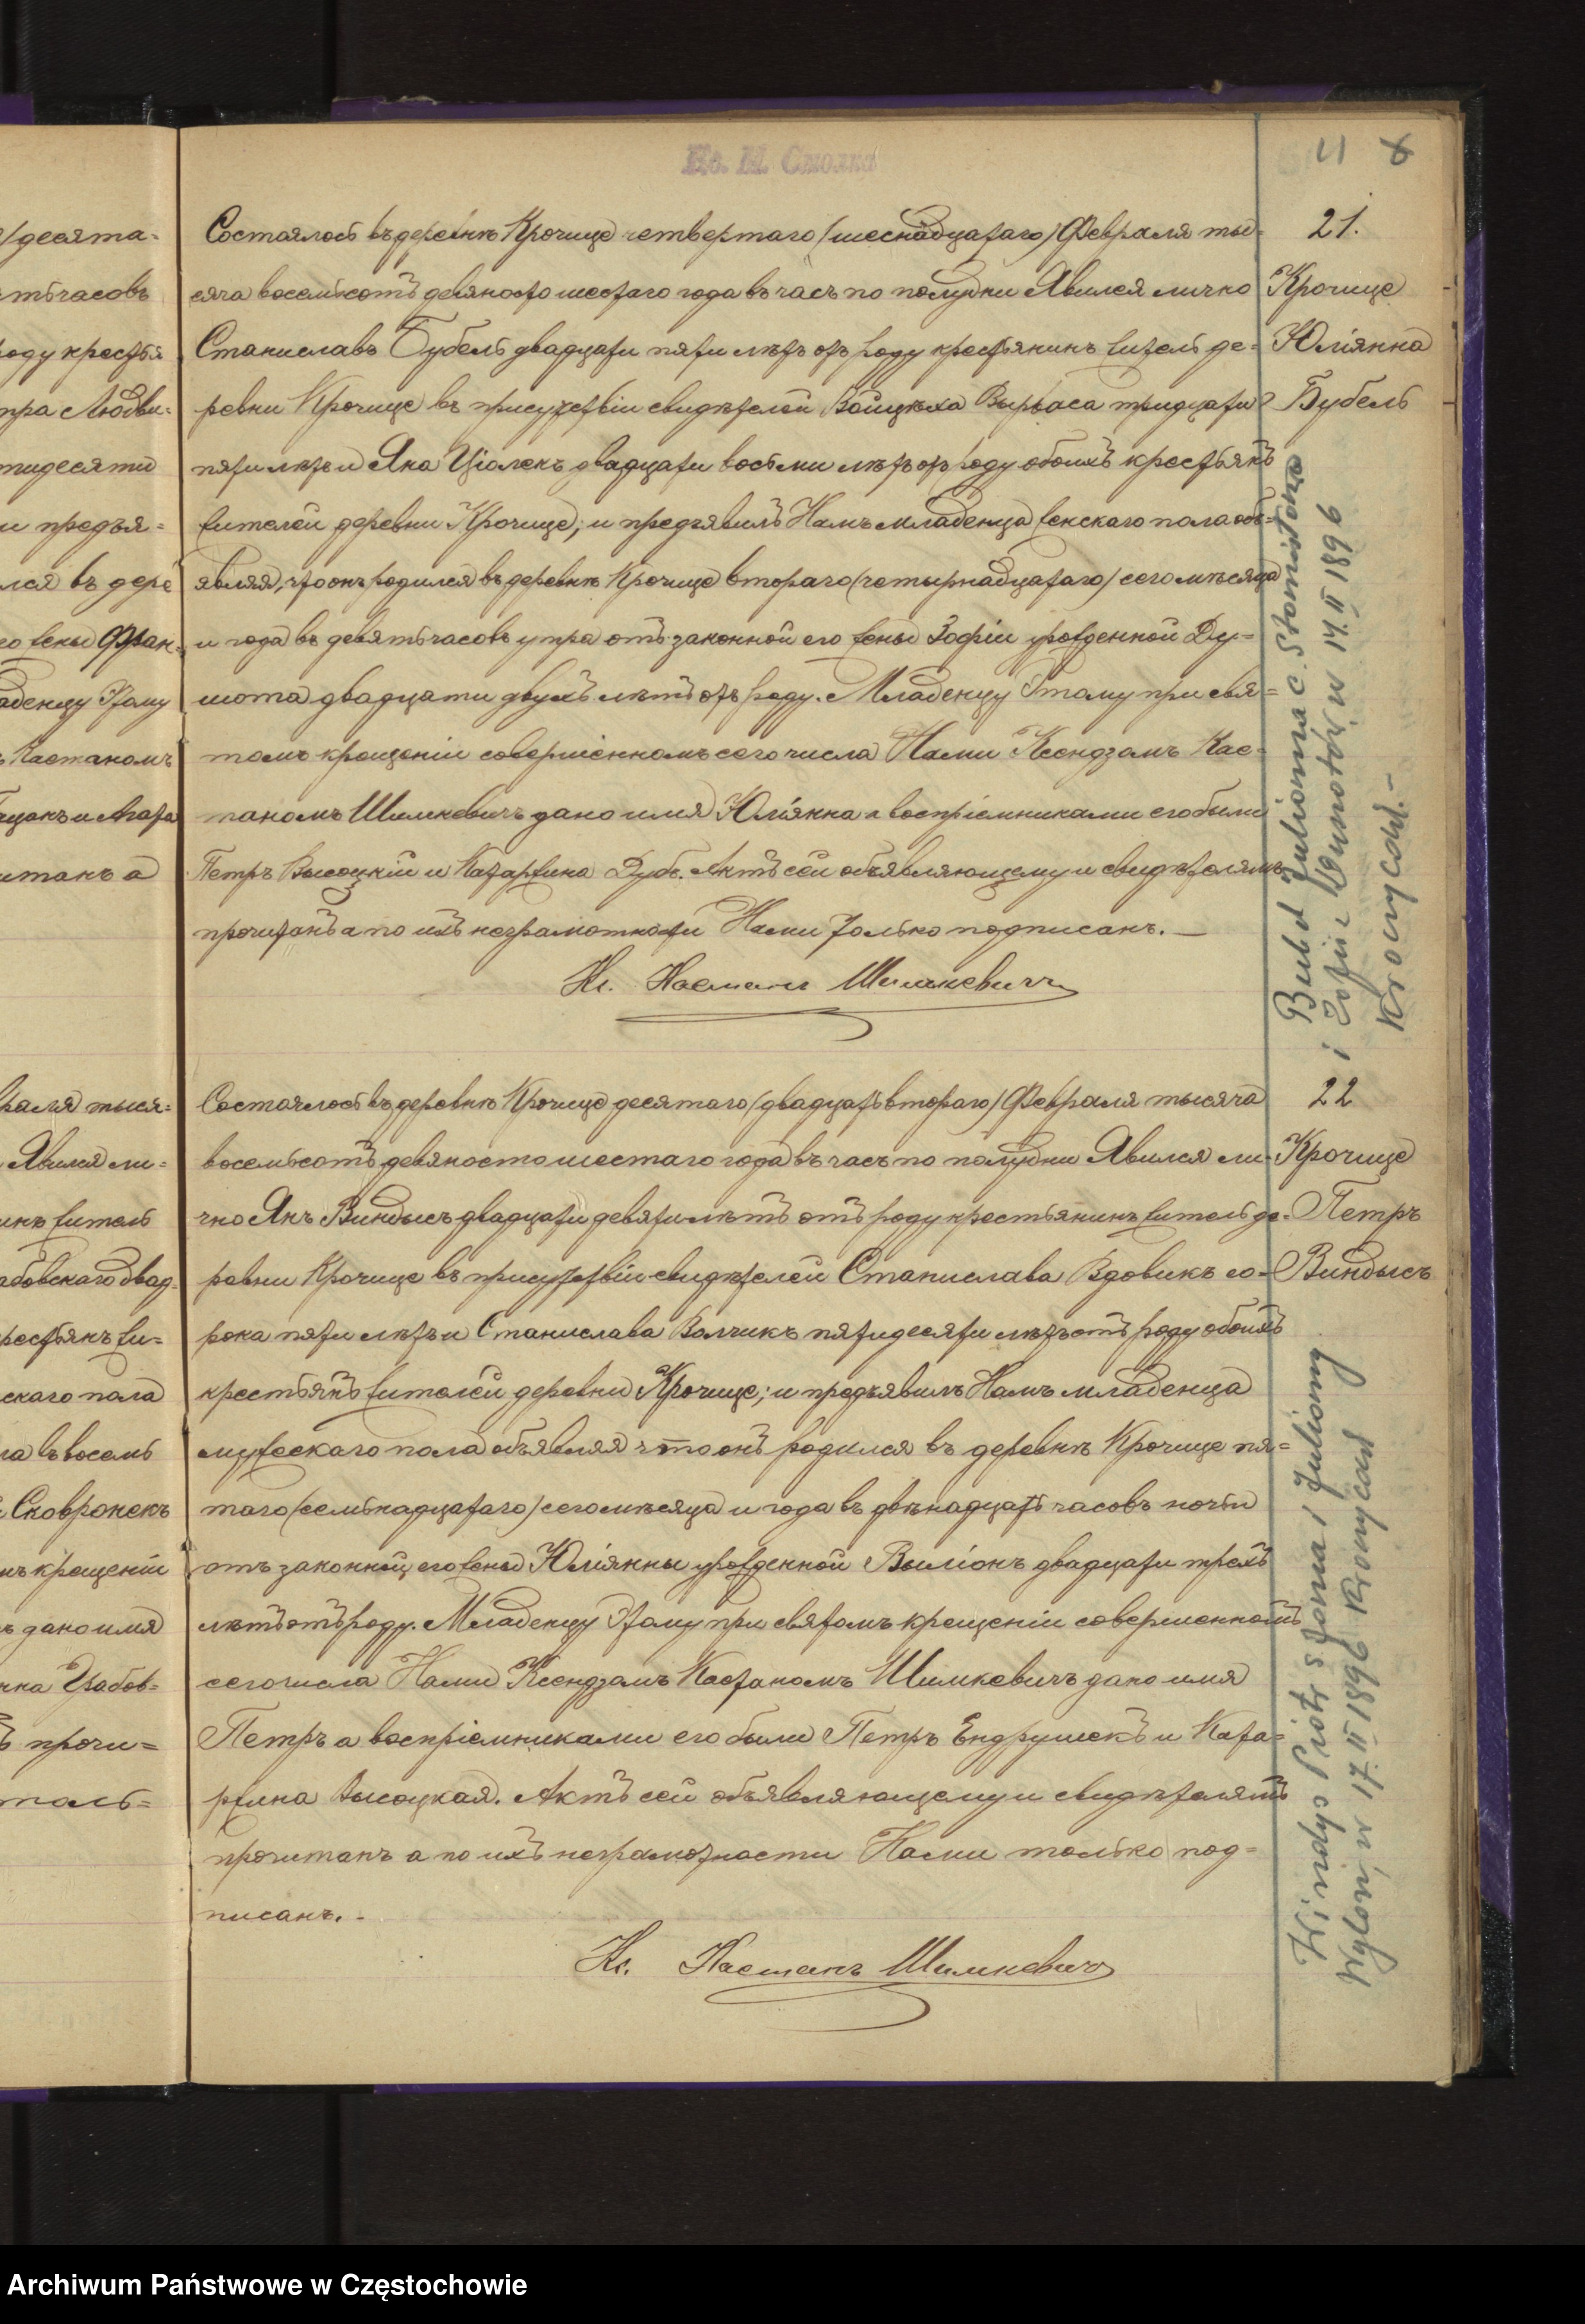 Кс. К. Смолка
11 8
/десята=
ть часовъ
роду крестья
тра Людви=
тидесяти
и предъя=
лся въ дере
его жены Фран=
младенцу Этому
ъ Каетаномъ
итанъ а
Состоялось въ деревнѣ Крочице четвертаго /шеснадцатаго/ Февраля ты=
сяча восемьсотъ девяносто шестаго года въ часъ по полудни Явился лично
Станиславъ Бубель двадцати пяти лѣтъ отъ роду крестьянинъ житель де=
ревни Крочице въ присутствіи свидѣтелей Войцѣха Вырваса тридцати
пяти лѣтъ и Яна Ціолекъ двадцати восьми лѣтъ отъ роду обоихъ крестьянъ
жителей деревни Крочице; и предъявилъ Намъ младенца женскаго пола объ=
являя, что онъ родился въ деревнѣ Крочице втораго /четырнадцатаго/ сего мѣсяца
и года въ девять часовъ утра отъ законной его жены Зофіи урожденной Ду=
шота двадцати двухъ лѣтъ отъ роду. Младенцу Этому при свя=
томъ крещеніи совершенномъ сего числа Нами Ксендзомъ Кае=
таномъ Шимкевичъ дано имя Юліянна а воспріемниками его были
Петръ Высоцкій и Катаржина Дубъ. Актъ сей объявляющему и свидѣтелямъ
прочитанъ а по ихъ неграмотности Нами только подписанъ. —
Кс. Каетанъ Шимкевичъ
21.
Крочице
Юліянна
Бубель
Bubel Julianna c. Stanisława
i Zofii z Dunotów ur 14.II 1896
Kroczyce. -
враля тыся=
Явился ли=
инъ житель
бовскаго двад=
рестьянъ жи=
скаго пола
въ восемь
Сковронекъ
мъ крещеніи
ъ дано имя
ъ прочи=
толь=
Состоялось въ деревнѣ Крочице десятаго /двадцать втораго/ Февраля тысяча
восемьсотъ девяносто шестаго года въ часъ по полудни Явился ли=
чно Янъ Виндысъ двадцати девяти лѣтъ отъ роду крестьянинъ житель де=
ревни Крочице въ присутствіи свидѣтелей Станислава Вдовикъ со=
рока пяти лѣтъ и Станислава Волчикъ пятидесяти лѣтъ отъ роду обоихъ
крестьянъ жителей деревни Крочице; и предъявилъ Намъ младенца
мужескаго пола объявляя что онъ родился въ деревнѣ Крочице пя=
таго /семьнадцатаго/ сего мѣсяца и года въ двѣнадцать часовъ ночи
отъ законной его жены Юліянны урожденной Выліонъ двадцати трехъ
лѣтъ отъ роду. Младенцу Этому при святомъ крещеніи совершенномъ
сего числа Нами Ксендзомъ Каетаномъ Шимкевичъ дано имя
Петръ а воспріемниками его были Петръ Ендрушекъ и Ката=
ржина Высоцкая. Актъ сей объявляющему и свидѣтелямъ
прочитанъ а по ихъ неграмотности Нами только под=
писанъ. -
Кс. Каетанъ Шимкевичъ
22
Крочице
Петръ
Виндысъ
Windys Piotr s Jana i Julianny
Wylon, ur 17.II 1896 Kroczyce
Archiwum Państwowe w Częstochowie